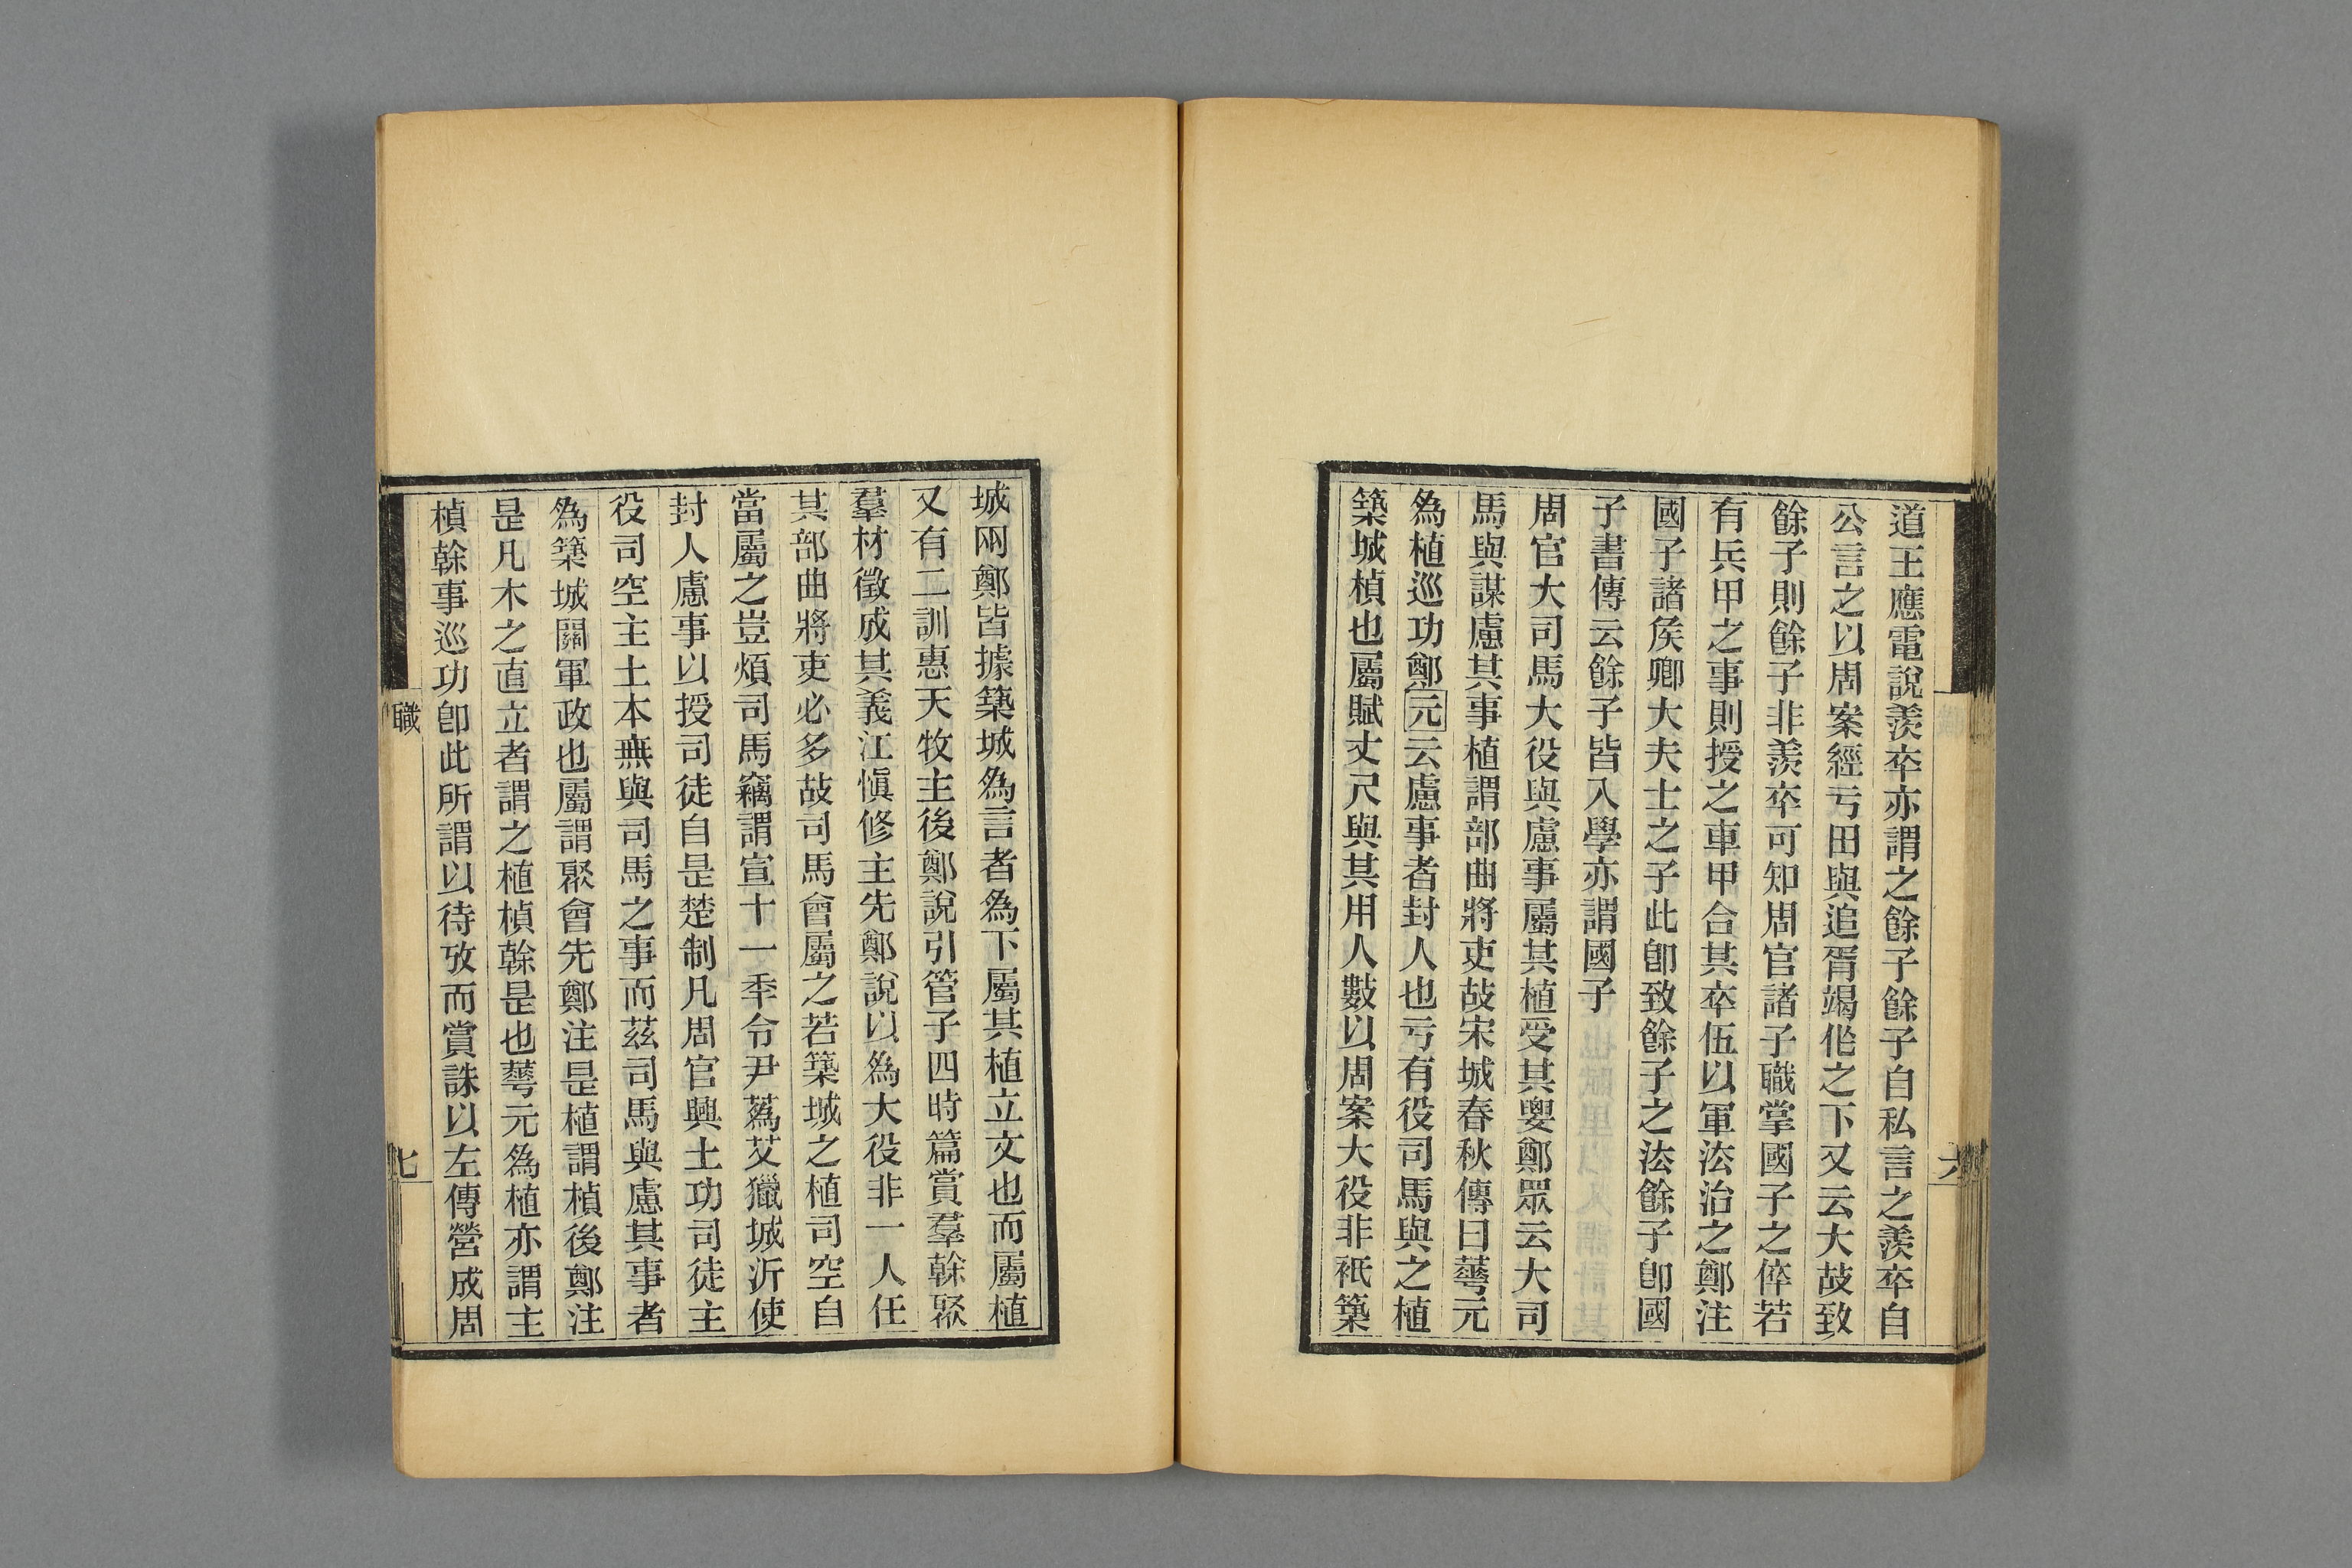 道王應電說羨卒亦謂之餘子餘子自私言之羨卒自
公言之以周案經亏田與追胥竭作之下又云大故致
餘子則餘子非羨卒可知周官諸子職掌國子之倅若
有兵甲之事則授之車甲合其卒伍以軍法治之鄭注
國子諸矦卿大夫士之子此卽致餘子之法餘子卽國
子書傳云餘子皆入學亦謂國子
周官大司馬大役與慮事屬其植受其要鄭眾云大司
馬與謀慮其事植謂部曲將吏故宋城春秋傳曰華元
為植巡功鄭元云慮事者封人也亏有役司馬與之植
築城楨也屬賦丈尺與其用人數以周案大役非祇築
城兩鄭皆據築城為言者為下屬其植立文也而屬植
又有二訓惠天牧主後鄭說引管子四時篇賞羣榦聚
羣材徵成其義江愼修主先鄭說以為大役非一人任
其部曲將吏必多故司馬會屬之若築城之植司空自
當屬之豈煩司馬竊謂宣十一季令尹蒍艾獵城沂使
封人慮事以授司徒自是楚制凡周官興土功司徒主
役司空主土本無與司馬之事而茲司馬與慮其事者
為築城關軍政也屬謂聚會先鄭注是植謂楨後鄭注
是凡木之直立者謂之植楨榦是也華元為植亦謂主
楨榦事巡功卽此所謂以待攷而賞誅以左傳營成周
職
七
六